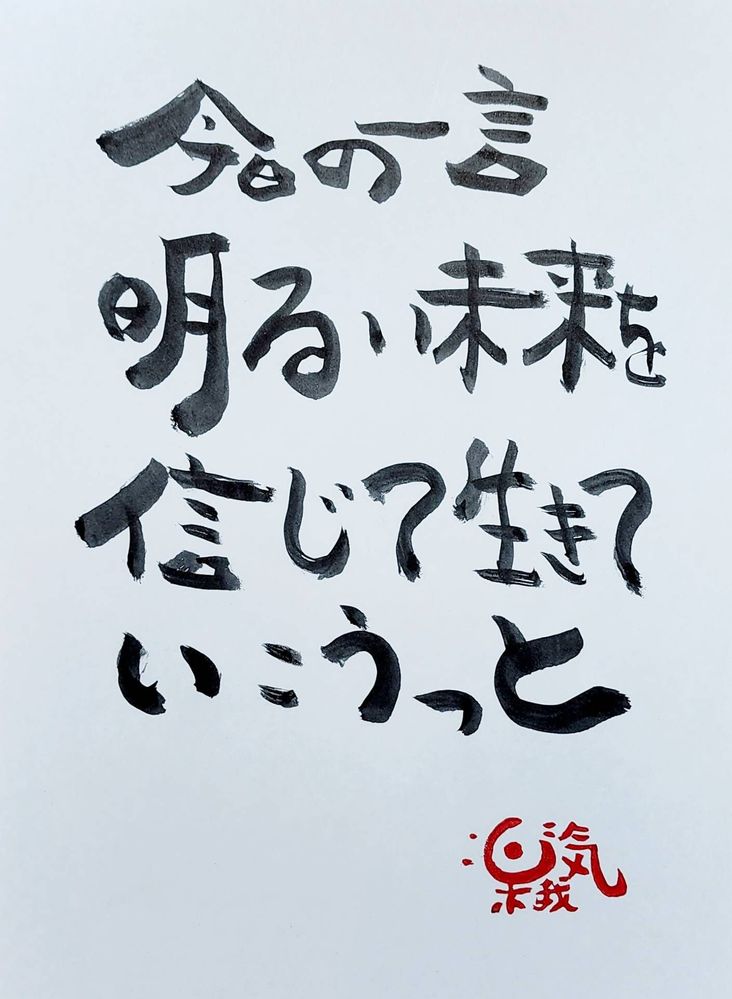 今日の一言
明るい未来を
信じて生きて
いこうっと
楽気
我